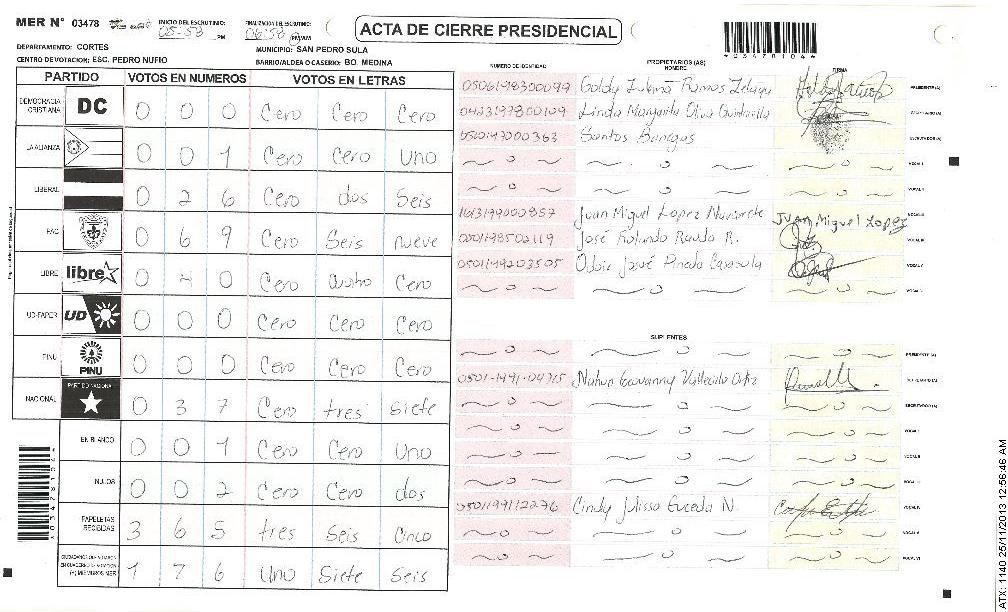 MER N° 03478
INICIO DEL ESCRUTINIO: 05:53 PM
FINALIZACION DEL ESCRUTINIO: 06:58 PM
ACTA DE CIERRE PRESIDENCIAL
*03478104*
DEPARTAMENTO: CORTES
MUNICIPIO: SAN PEDRO SULA
CENTRO DE VOTACION: ESC. PEDRO NUFIO
BARRIO/ALDEA O CASERIO: BO. MEDINA
PARTIDO VOTOS EN NUMEROS VOTOS EN LETRAS
DEMOCRACIA CRISTIANA DC 0 0 0 Cero Cero Cero
LA ALIANZA 0 0 1 Cero Cero Uno
LIBERAL 0 2 6 Cero dos Seis
PAC 0 6 9 Cero Seis nueve
LIBRE libre 0 4 0 Cero Cuatro Cero
UD-FAPER UD 0 0 0 Cero Cero Cero
PINU PINU 0 0 0 Cero Cero Cero
NACIONAL PARTIDO NACIONAL 0 3 7 Cero tres Siete
EN BLANCO 0 0 1 Cero Cero Uno
NULOS 0 0 2 Cero Cero dos
PAPELETAS RECIBIDAS 3 6 5 tres Seis Cinco
CIUDADANOS QUE VOTARON EN CUADERNO DE VOTACION (+) MIEMBROS MER 1 7 6 Uno Siete Seis
*03478104*
NUMERO DE IDENTIDAD PROPIETARIOS (AS) NOMBRE FIRMA
0506198300099 Goldy Ramos PRESIDENTE (A)
0423197800109 Linda Margarita Oliva Quintanilla SECRETARIO (A)
Santos Banegas ESCRUTADOR (A)
VOCAL I
VOCAL II
1613199000857 Juan Miguel Lopez Navarrete Juan Miguel Lopez
0501198502119 José Rolando R. VOCAL IV
0501199203505 José Pineda VOCAL V
SUPLENTES
PRESIDENTE (A)
0501-1991-04715 Nahun Geovanny Vallecillo Ortiz SECRETARIO (A)
ESCRUTADOR (A)
VOCAL I
VOCAL II
VOCAL III
0501199112276 Cindy Julissa Euceda N. VOCAL IV
VOCAL V
VOCAL VI
ATX: 1140 25/11/2013 12:56:46 AM